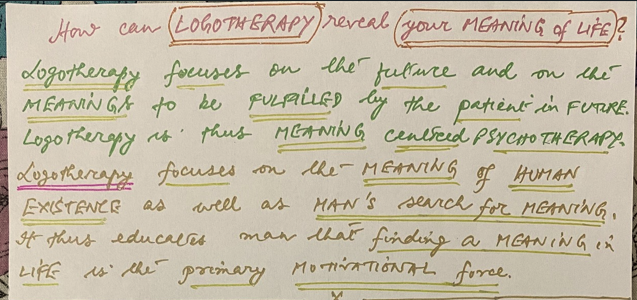 How can LOGOTHERAPY reveal your MEANING of LIFE?
Logotherapy focuses on the future and on the
MEANINGS to be FULFILLED by the patient in FUTURE.
Logotherapy is thus MEANING centered PSYCHOTHERAPY.
Logotherapy focuses on the MEANING of HUMAN
EXISTENCE as well as MAN'S search for MEANING.
It thus educates man that finding a MEANING in
LIFE is the primary MOTIVATIONAL force.